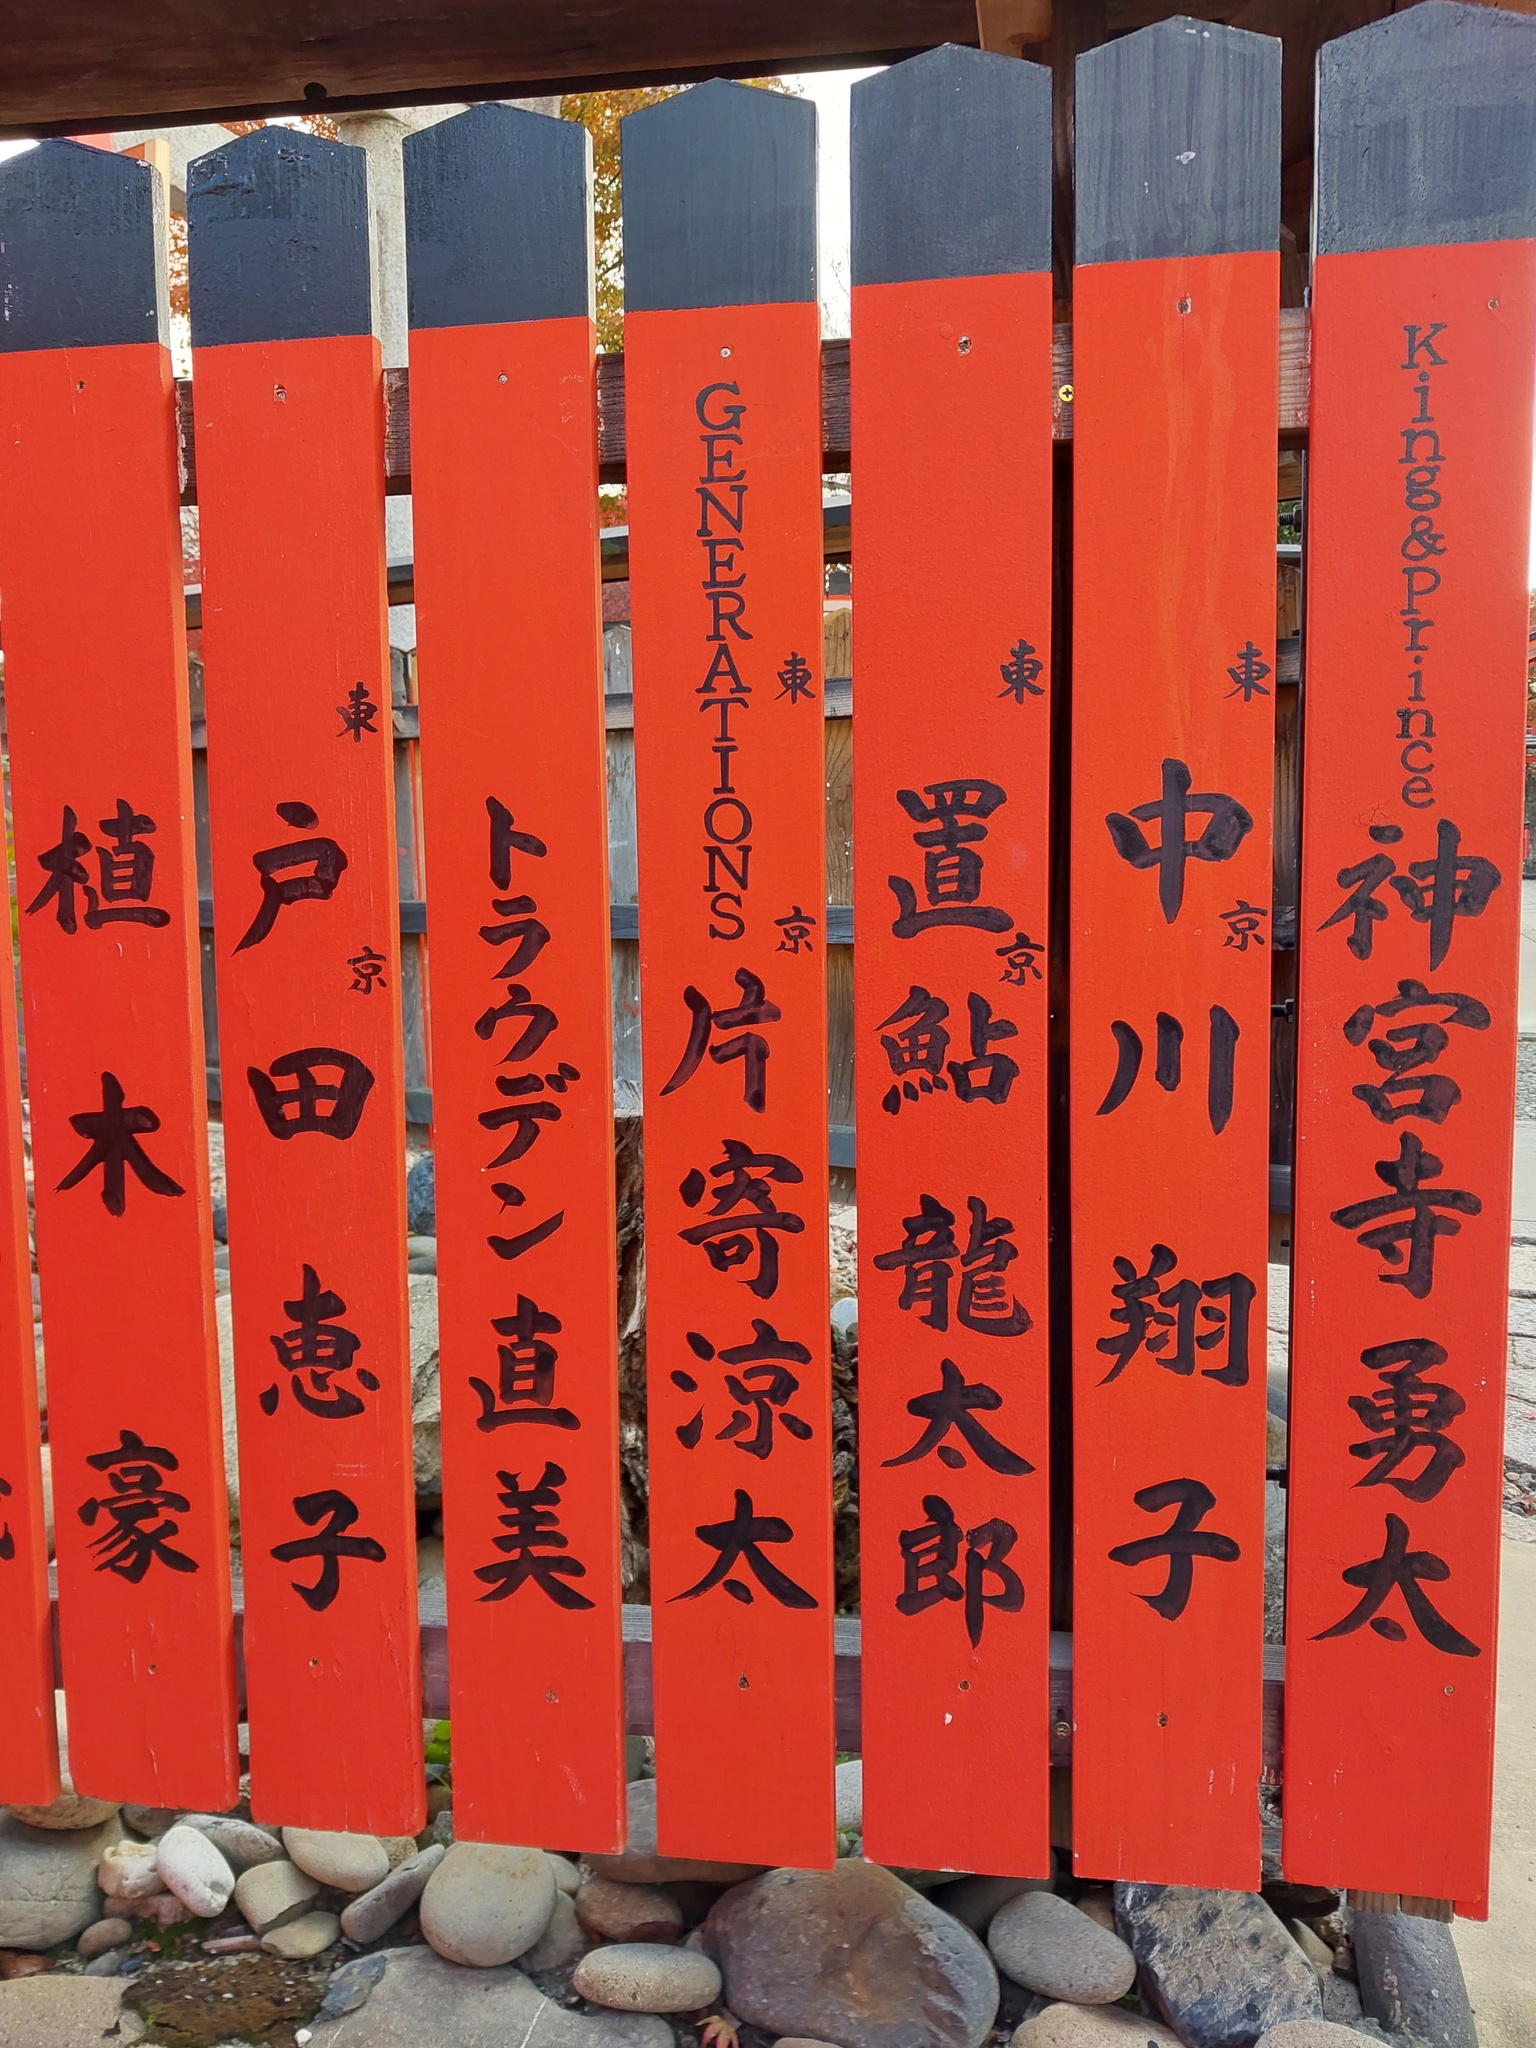 King&Prince 神宮寺勇太
東京
中川翔子
東京
置鮎龍太郎
東京
GENERATIONS 片寄涼太
トラウデン直美
東京
戸田恵子
植木豪